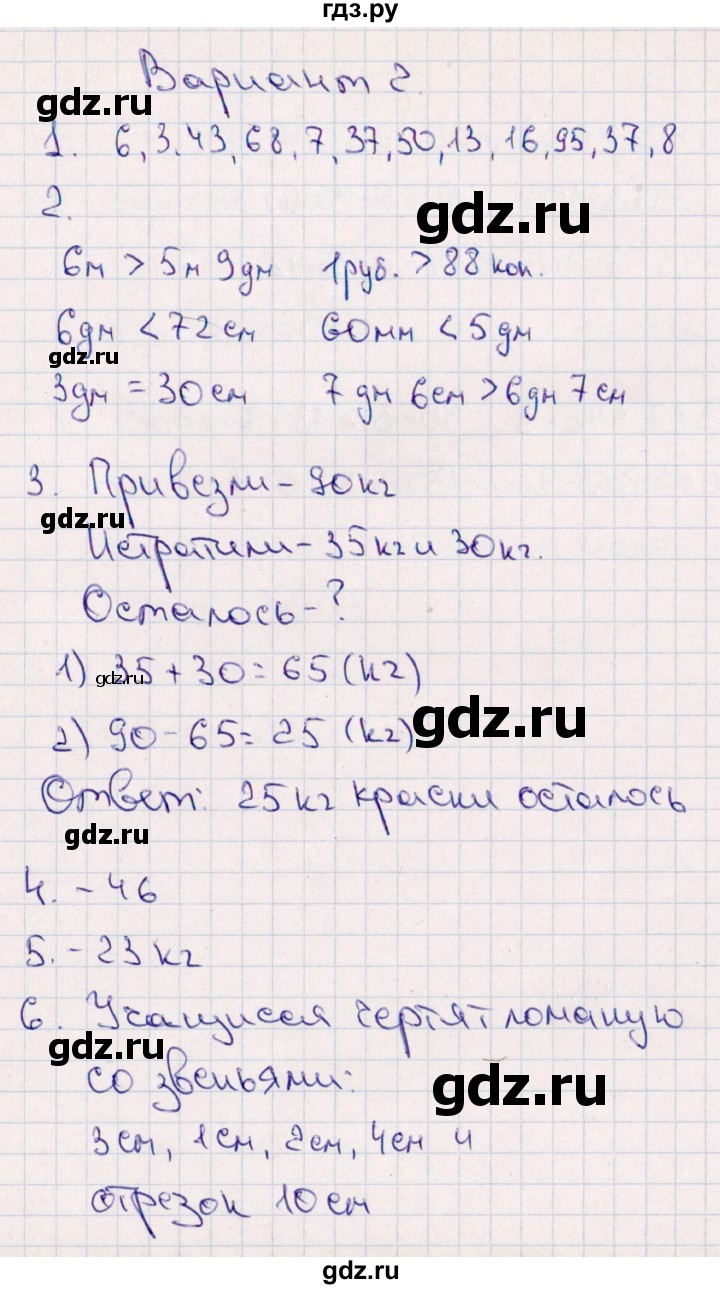 гдз.ру
Вариант 2.
gdz.ru
1. 6, 3, 43, 68, 7, 37, 50, 13, 16, 95, 37, 8
2.
gdz.ru
6м > 5м 9дм 1руб. > 88 коп.
6дм < 72 см 60мм < 5 дм
gdz.ru
3дм = 30 см 7 дм 6см > 6дм 7 см
3. Привезли - 90 кг
gdz.ru
Истратили - 35 кг и 30 кг.
Осталось - ?
1) 35 + 30 = 65 (кг)
gdz.ru
gdz.ru
2) 90 - 65 = 25 (кг)
Ответ: 25 кг краски осталось
gdz.ru
4. - 46
5. - 23 кг
6. Учащиеся чертят ломаную
gdz.ru
со звеньями:
gdz.ru
3 см, 1 см, 2 см, 4 см и
отрезок 10 см
gdz.ru